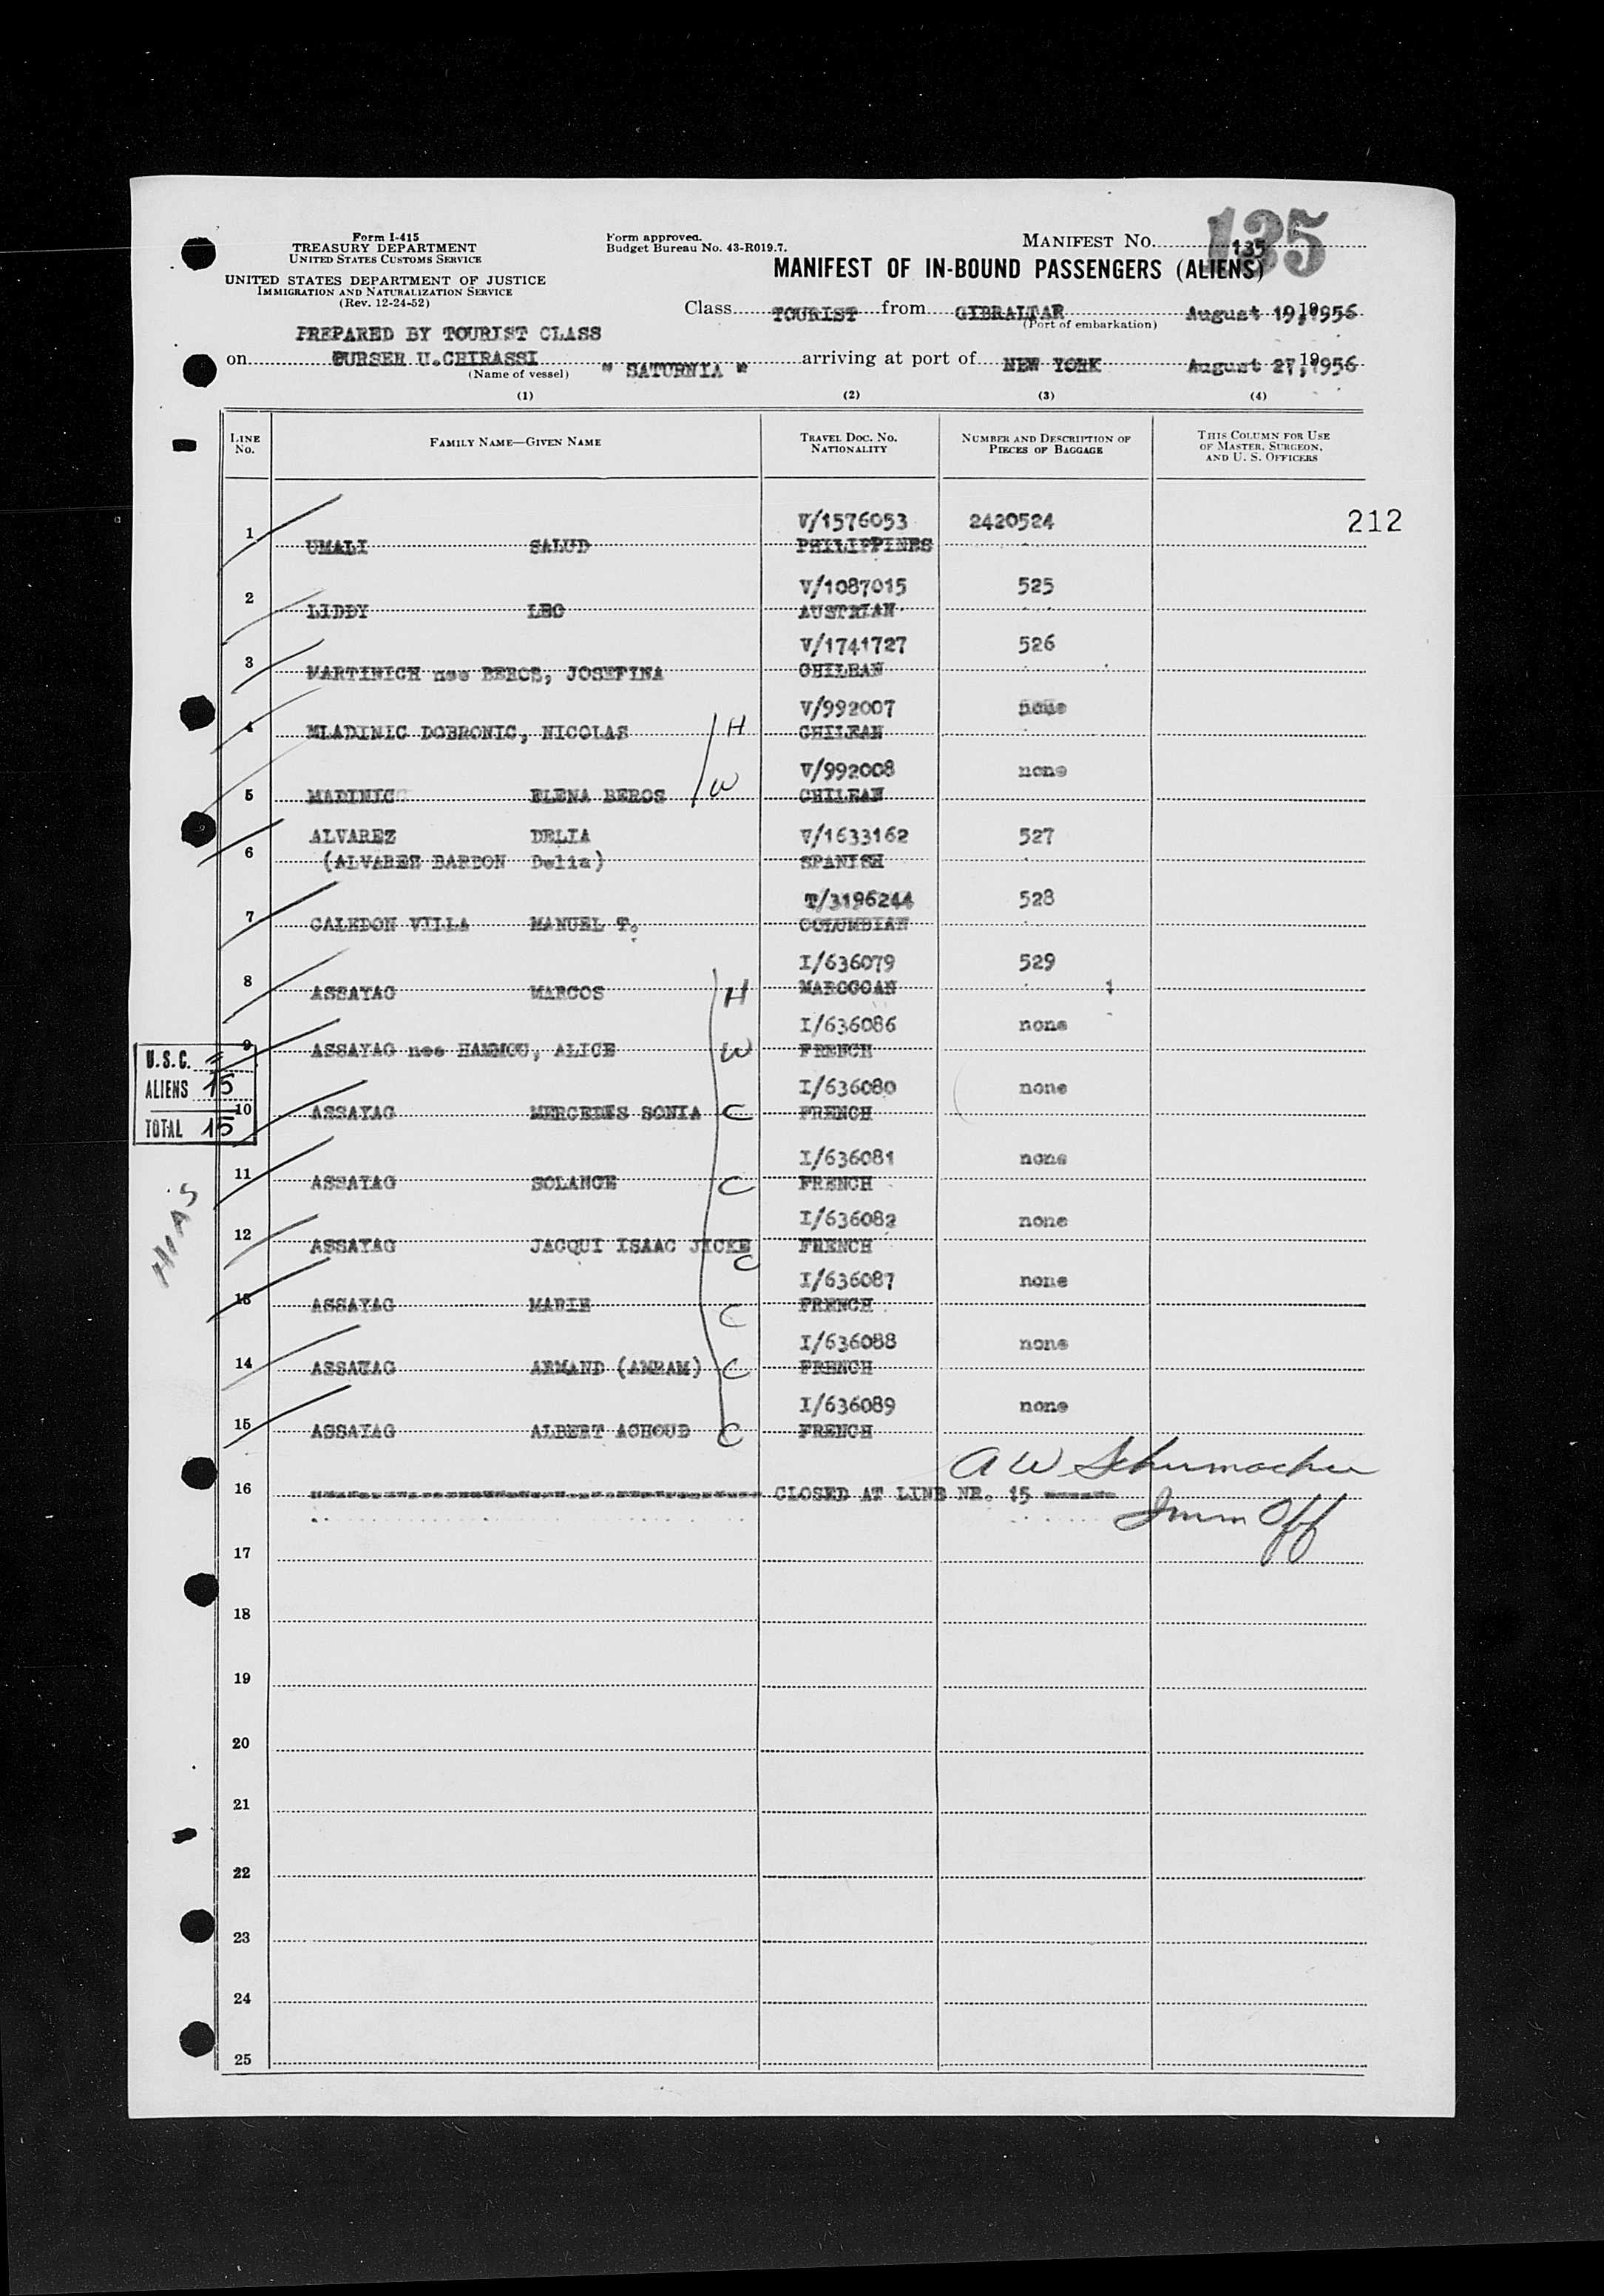 135
Form I-415
TREASURY DEPARTMENT
UNITED STATES CUSTOMS SERVICE
UNITED STATES DEPARTMENT OF JUSTICE
IMMIGRATION AND NATURALIZATION SERVICE
(Rev. 12-24-52)
Form approved.
Budget Bureau No. 43-R019.7.
MANIFEST NO. 135
MANIFEST OF IN-BOUND PASSENGERS (ALIENS)
Class TOURIST from GIBRALTAR August 19, 1956
(Port of embarkation)
PREPARED BY TOURIST CLASS
on PURSER U.CHIRASSI " SATURNIA " arriving at port of NEW YORK August 27, 1956
(Name of vessel)
(1) (2) (3) (4)
LINE No. FAMILY NAME—GIVEN NAME TRAVEL DOC. NO. NATIONALITY NUMBER AND DESCRIPTION OF PIECES OF BAGGAGE THIS COLUMN FOR USE OF MASTER, SURGEON, AND U. S. OFFICERS
V/1576053 2420524 212
1 UMALI SALUD PHILIPPINES
V/1087015 525
2 LIDDY LEO AUSTRIAN
V/1741727 526
3 MARTINICH nee BEROS, JOSEFINA CHILEAN
V/992007 none
4 MLADINIC DOBRONIC, NICOLAS H CHILEAN
V/992008 none
5 MADINIC ELENA BEROS W CHILEAN
ALVAREZ DELIA V/1633162 527
6 (ALVAREZ BARDON Delia) SPANISH
T/3196244 528
7 CALEDON VILLA MANUEL T. COLUMBIAN
I/636079 529
8 ASSAYAG MARCOS H MAROCCAN 1
I/636086 none
9 ASSAYAG nee HAMMOU, ALICE W FRENCH
U.S.C. =
ALIENS 15
TOTAL 15
I/636080 none
10 ASSAYAG MERCEDES SONIA C FRENCH
I/636081 none
11 ASSAYAG SOLANGE C FRENCH
HIAS
I/636082 none
12 ASSAYAG JACQUI ISAAC JICKE C FRENCH
I/636087 none
13 ASSAYAG MARIE C FRENCH
I/636088 none
14 ASSAYAG ARMAND (AMRAM) C FRENCH
I/636089 none
15 ASSAYAG ALBERT ACHOUD C FRENCH
A W Schumacher
16 CLOSED AT LINE NR. 15
Imm Off
17
18
19
20
21
22
23
24
25